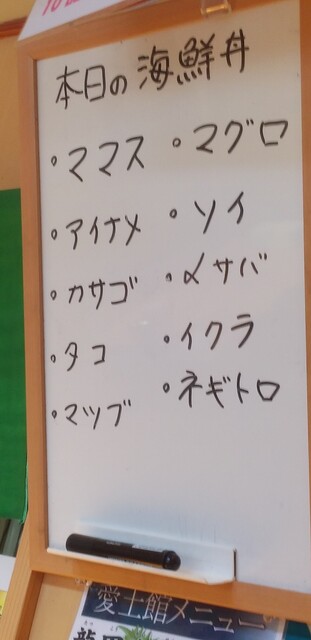 本日の海鮮丼
・ママス ・マグロ
・アイナメ ・ソイ
・カサゴ ・〆サバ
・タコ ・イクラ
・マツブ ・ネギトロ
愛土館メニュー